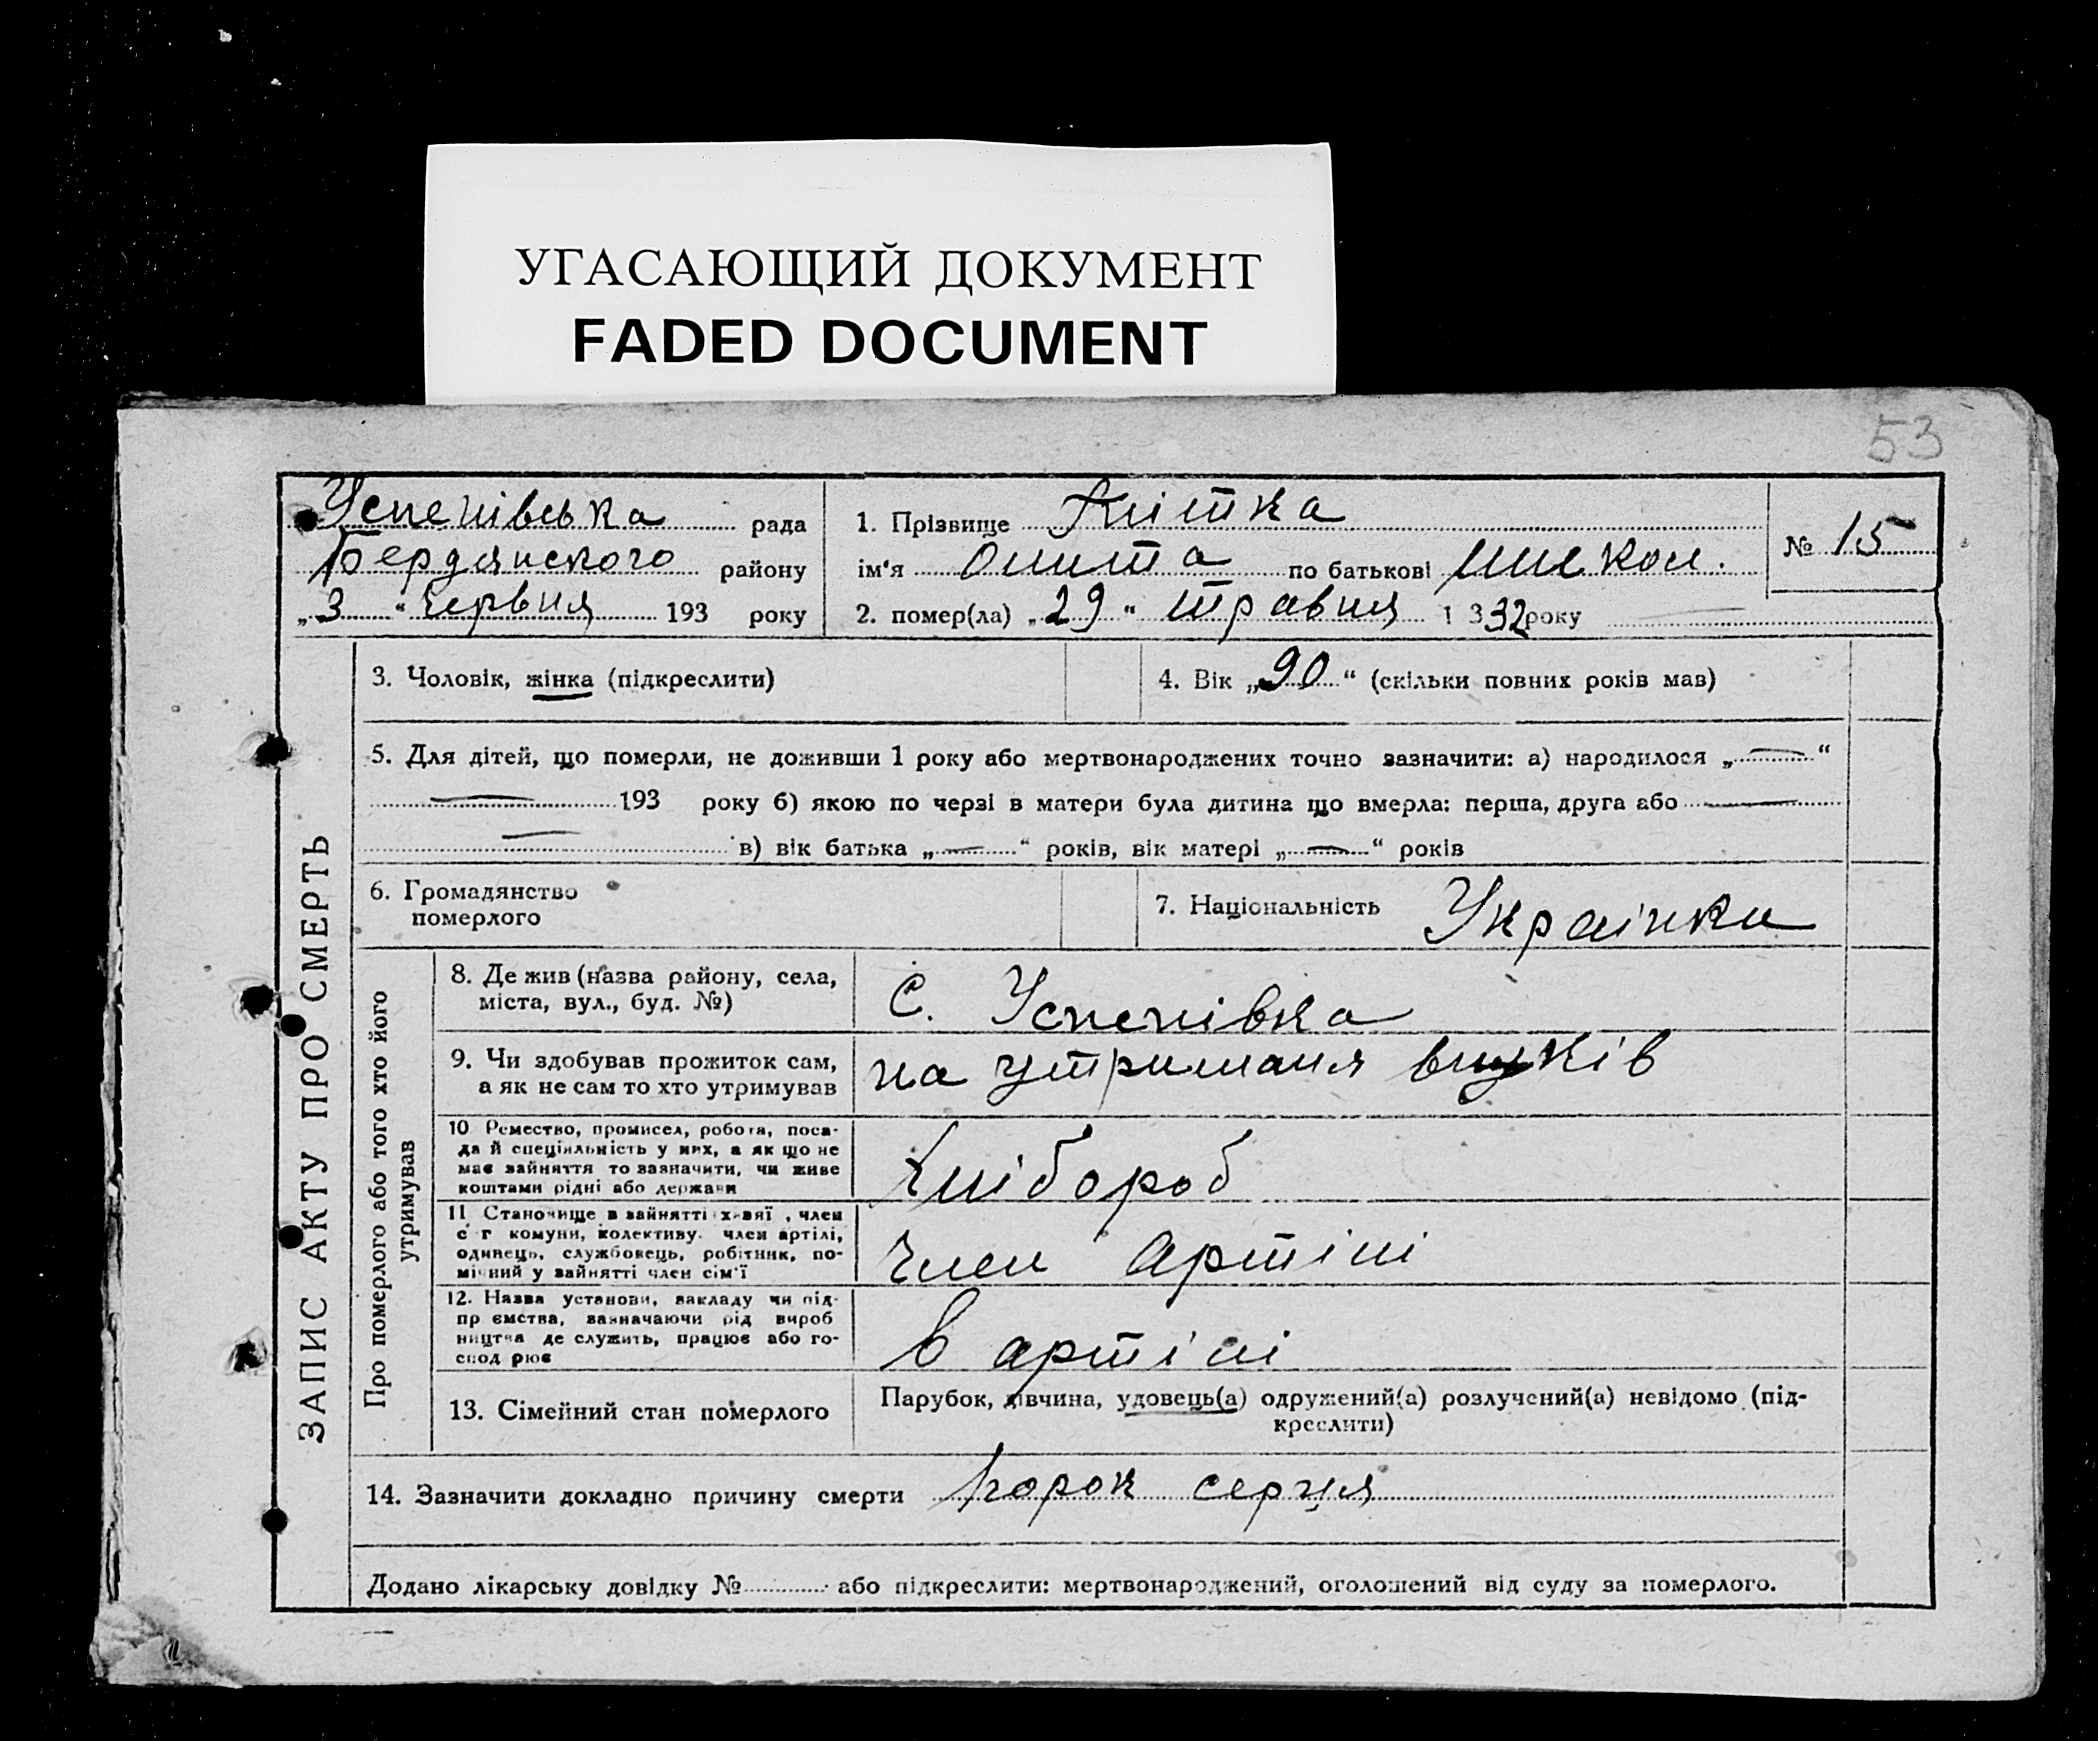 УГАСАЮЩИЙ ДОКУМЕНТ
FADED DOCUMENT
53
Успенівська рада
Бердянского району
„3“ Червня 193 року
1. Прізвище Клітка
ім'я по батькові
2. помер(ла) „29“ травня 1 332 року
№ 15
ЗАПИС АКТУ ПРО СМЕРТЬ
3. Чоловік, жінка (підкреслити)
4. Вік „90“ (скільки повних років мав)
5. Для дітей, що померли, не доживши 1 року або мертвонароджених точно зазначити: а) народилося „—“
— 193 року б) якою по черзі в матери була дитина що вмерла: перша, друга або —
— в) вік батька „—“ років, вік матері „—“ років
6. Громадянство
померлого
7. Національність Українка
Про померлого або того хто його
утримував
8. Де жив (назва району, села,
міста, вул., буд. №)
С. Успенівка
9. Чи здобував прожиток сам,
а як не сам то хто утримував
на утриманя внуків
10 Ремество, промисел, робота, поса-
да й спеціяльність у них, а як що не
має зайняття то зазначити, чи живе
коштами рідні або держави
Хлібороб
11 Становище в зайнятті х-вяї , член
с г комуни, колективу. член артілі,
одинець, службовець, робітник, по-
мічний у зайнятті член сім'ї
Член Артілі
12. Назва установи, закладу чи під-
пр ємства, вазначаючи рід вироб
ництва де служить, працює або го-
спод рює
в артілі
13. Сімейний стан померлого
Парубок, дівчина, удовець(а) одружений(а) розлучений(а) невідомо (під-
креслити)
14. Зазначити докладно причину смерти порок серця
Додано лікарську довідку № або підкреслити: мертвонароджений, оголошений від суду за померлого.